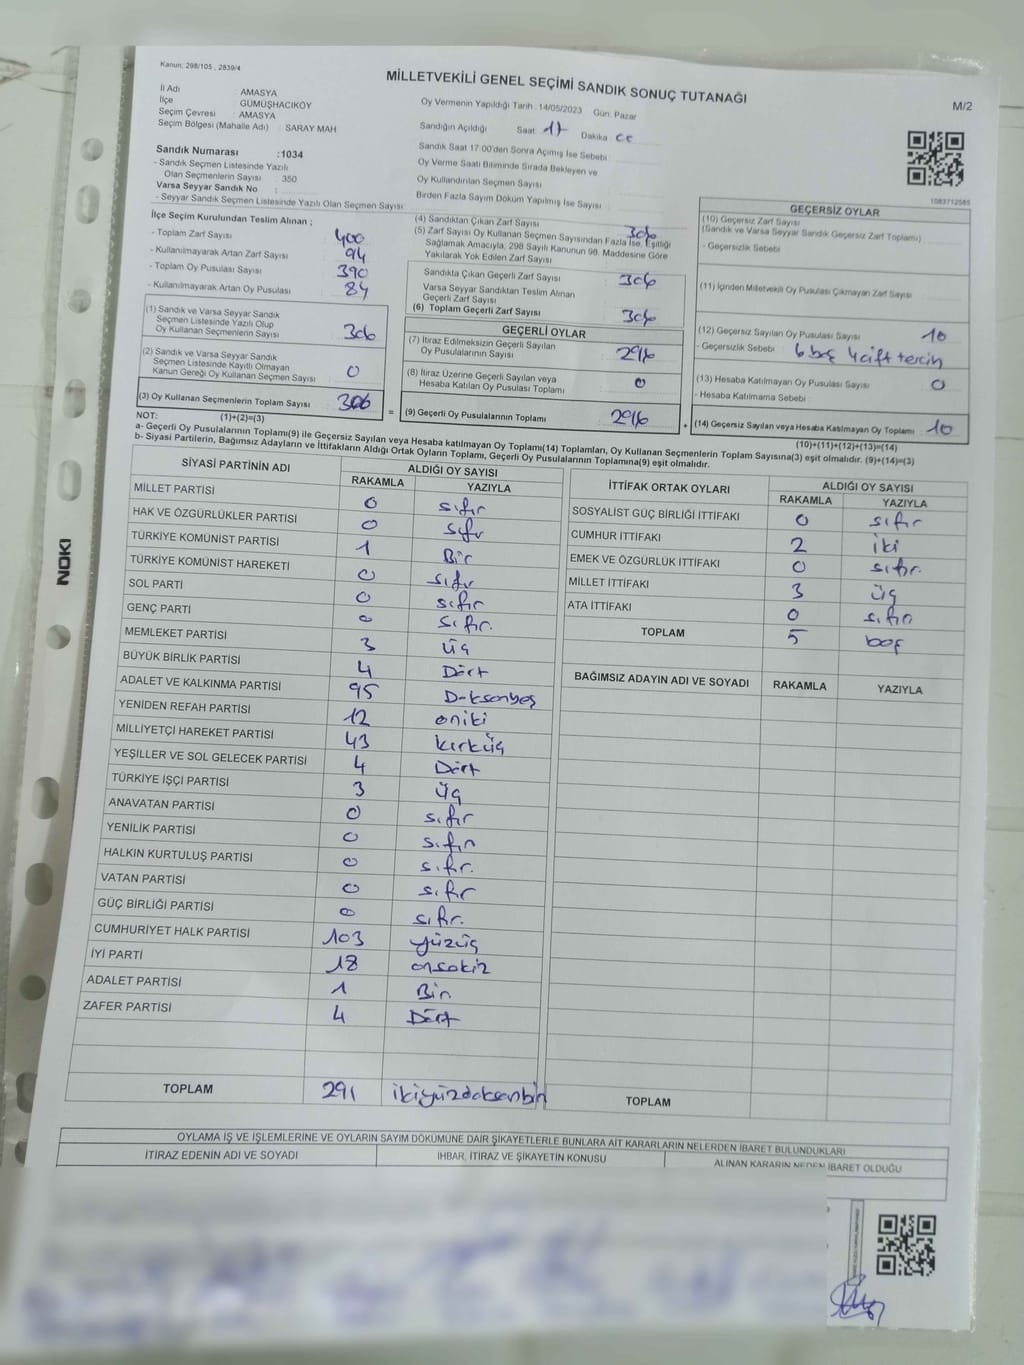 Kanun: 298/105 , 2839/4
MİLLETVEKİLİ GENEL SEÇİMİ SANDIK SONUÇ TUTANAĞI
M/2
İl Adı : AMASYA
İlçe : GÜMÜŞHACIKÖY
Seçim Çevresi : AMASYA
Seçim Bölgesi (Mahalle Adı) : SARAY MAH
Sandık Numarası :1034
- Sandık Seçmen Listesinde Yazılı
Olan Seçmenlerin Sayısı : 350
Varsa Seyyar Sandık No :
- Seyyar Sandık Seçmen Listesinde Yazılı Olan Seçmen Sayısı
Oy Vermenin Yapıldığı Tarih : 14/05/2023 Gün: Pazar
Sandığın Açıldığı Saat: 17 Dakika:
Sandık Saat 17:00'den Sonra Açılmış İse Sebebi
Oy Verme Saati Bitiminde Sırada Bekleyen ve
Oy Kullandırılan Seçmen Sayısı
Birden Fazla Sayım Döküm Yapılmış İse Sayısı
1083712585
İlçe Seçim Kurulundan Teslim Alınan ;
- Toplam Zarf Sayısı 400
- Kullanılmayarak Artan Zarf Sayısı 94
- Toplam Oy Pusulası Sayısı 390
- Kullanılmayarak Artan Oy Pusulası 84
(1) Sandık ve Varsa Seyyar Sandık
Seçmen Listesinde Yazılı Olup
Oy Kullanan Seçmenlerin Sayısı 306
(2) Sandık ve Varsa Seyyar Sandık
Seçmen Listesinde Kayıtlı Olmayan
Kanun Gereği Oy Kullanan Seçmen Sayısı 0
(3) Oy Kullanan Seçmenlerin Toplam Sayısı 306
(4) Sandıktan Çıkan Zarf Sayısı 306
(5) Zarf Sayısı Oy Kullanan Seçmen Sayısından Fazla İse, Eşitliği
Sağlamak Amacıyla, 298 Sayılı Kanunun 98. Maddesine Göre
Yakılarak Yok Edilen Zarf Sayısı
Sandıkta Çıkan Geçerli Zarf Sayısı 306
Varsa Seyyar Sandıktan Teslim Alınan
Geçerli Zarf Sayısı
(6) Toplam Geçerli Zarf Sayısı 306
GEÇERLİ OYLAR
(7) İtiraz Edilmeksizin Geçerli Sayılan
Oy Pusulalarının Sayısı 296
(8) İtiraz Üzerine Geçerli Sayılan veya
Hesaba Katılan Oy Pusulası Toplamı 0
= (9) Geçerli Oy Pusulalarının Toplamı 296
GEÇERSİZ OYLAR
(10) Geçersiz Zarf Sayısı
(Sandık ve Varsa Seyyar Sandık Geçersiz Zarf Toplamı)
- Geçersizlik Sebebi
(11) İçinden Milletvekili Oy Pusulası Çıkmayan Zarf Sayısı
(12) Geçersiz Sayılan Oy Pusulası Sayısı 10
- Geçersizlik Sebebi : 6 boş 4 çift tercih
(13) Hesaba Katılmayan Oy Pusulası Sayısı 0
- Hesaba Katılmama Sebebi
+ (14) Geçersiz Sayılan veya Hesaba Katılmayan Oy Toplamı 10
NOT: (1)+(2)=(3)
(10)+(11)+(12)+(13)=(14)
a- Geçerli Oy Pusulalarının Toplamı(9) ile Geçersiz Sayılan veya Hesaba katılmayan Oy Toplamı(14) Toplamları, Oy Kullanan Seçmenlerin Toplam Sayısına(3) eşit olmalıdır. (9)+(14)=(3)
b- Siyasi Partilerin, Bağımsız Adayların ve İttifakların Aldığı Ortak Oyların Toplamı, Geçerli Oy Pusulalarının Toplamına(9) eşit olmalıdır.
SİYASİ PARTİNİN ADI ALDIĞI OY SAYISI
RAKAMLA YAZIYLA
MİLLET PARTİSİ 0 sıfır
HAK VE ÖZGÜRLÜKLER PARTİSİ 0 sıfır
TÜRKİYE KOMÜNİST PARTİSİ 1 Bir
TÜRKİYE KOMÜNİST HAREKETİ 0 sıfır
SOL PARTİ 0 sıfır
GENÇ PARTİ 0 sıfır.
MEMLEKET PARTİSİ 3 üç
BÜYÜK BİRLİK PARTİSİ 4 Dört
ADALET VE KALKINMA PARTİSİ 95 Doksanbeş
YENİDEN REFAH PARTİSİ 12 oniki
MİLLİYETÇİ HAREKET PARTİSİ 43 kırküç
YEŞİLLER VE SOL GELECEK PARTİSİ 4 Dört
TÜRKİYE İŞÇİ PARTİSİ 3 üç
ANAVATAN PARTİSİ 0 sıfır
YENİLİK PARTİSİ 0 sıfır
HALKIN KURTULUŞ PARTİSİ 0 sıfır.
VATAN PARTİSİ 0 sıfır
GÜÇ BİRLİĞİ PARTİSİ 0 sıfır.
CUMHURİYET HALK PARTİSİ 103 yüzüç
İYİ PARTİ 18 onsekiz
ADALET PARTİSİ 1 Bir
ZAFER PARTİSİ 4 Dört
TOPLAM 291 ikiyüzdoksanbir
İTTİFAK ORTAK OYLARI ALDIĞI OY SAYISI
RAKAMLA YAZIYLA
SOSYALİST GÜÇ BİRLİĞİ İTTİFAKI 0 sıfır
CUMHUR İTTİFAKI 2 iki
EMEK VE ÖZGÜRLÜK İTTİFAKI 0 sıfır.
MİLLET İTTİFAKI 3 üç
ATA İTTİFAKI 0 sıfır
TOPLAM 5 beş
BAĞIMSIZ ADAYIN ADI VE SOYADI RAKAMLA YAZIYLA
TOPLAM
OYLAMA İŞ VE İŞLEMLERİNE VE OYLARIN SAYIM DÖKÜMÜNE DAİR ŞİKAYETLERLE BUNLARA AİT KARARLARIN NELERDEN İBARET BULUNDUKLARI
İTİRAZ EDENİN ADI VE SOYADI İHBAR, İTİRAZ VE ŞİKAYETİN KONUSU ALINAN KARARIN NEDEN İBARET OLDUĞU
NOKI